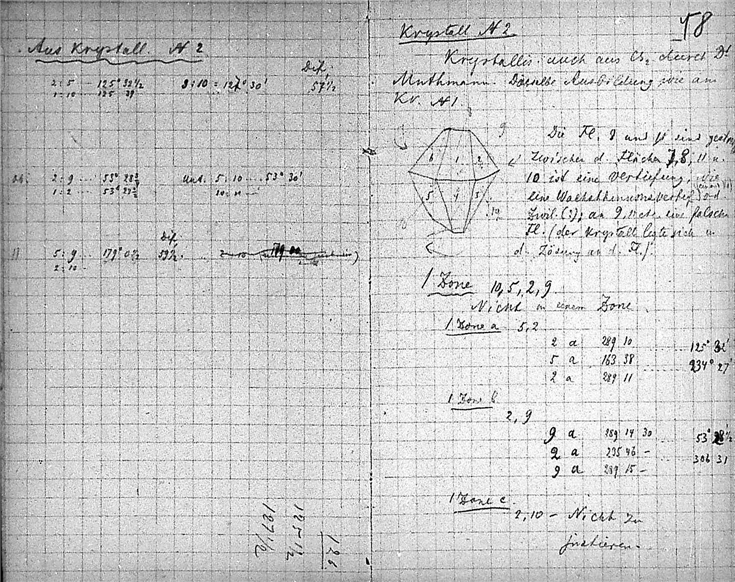 Aus Krystall N 2
Dif.
2:5 — 125° 32½ 8:10 = 127° 30' 57½
1:10 125 39
2:9 ... 53° 28¾ Unt. 5:10 ... 53° 30'
1:2 .. 53° 27¾ 10:11 —
Dif.
5:9 ... 179° 0½ 59½
2:10 ...
126
125 ½
127 ½
58
Krystall N 2
Krystallis. auch aus CS2 durch Dr
Muthmann. Dieselbe Ausbildung wie am
Kr. N 1.
Die Fl. 9 und
zwischen d. Flächen 7, 8, 11 u.
10 ist eine Vertiefung, wie
eine
Zwil. (?); an 9, 11 etc. eine falsche
Fl. (der Krystall legte sich in
d. Lösung an d. Fl.)
9
6 1 2
5 4 3
10
1 Zone 10, 5, 2, 9
Nicht in einem Zone.
1 Zone a 5, 2
2 a 289 10 ... 125° 32'
5 a 163 38 ... 234° 27'
2 a 289 11
1 Zone b
2, 9
9 a 289 14 30 ... 53° 28½
2 a 235 46 — ... 306 31
9 a 289 15 —
1 Zone c.
2, 10 — Nicht zu
justieren.